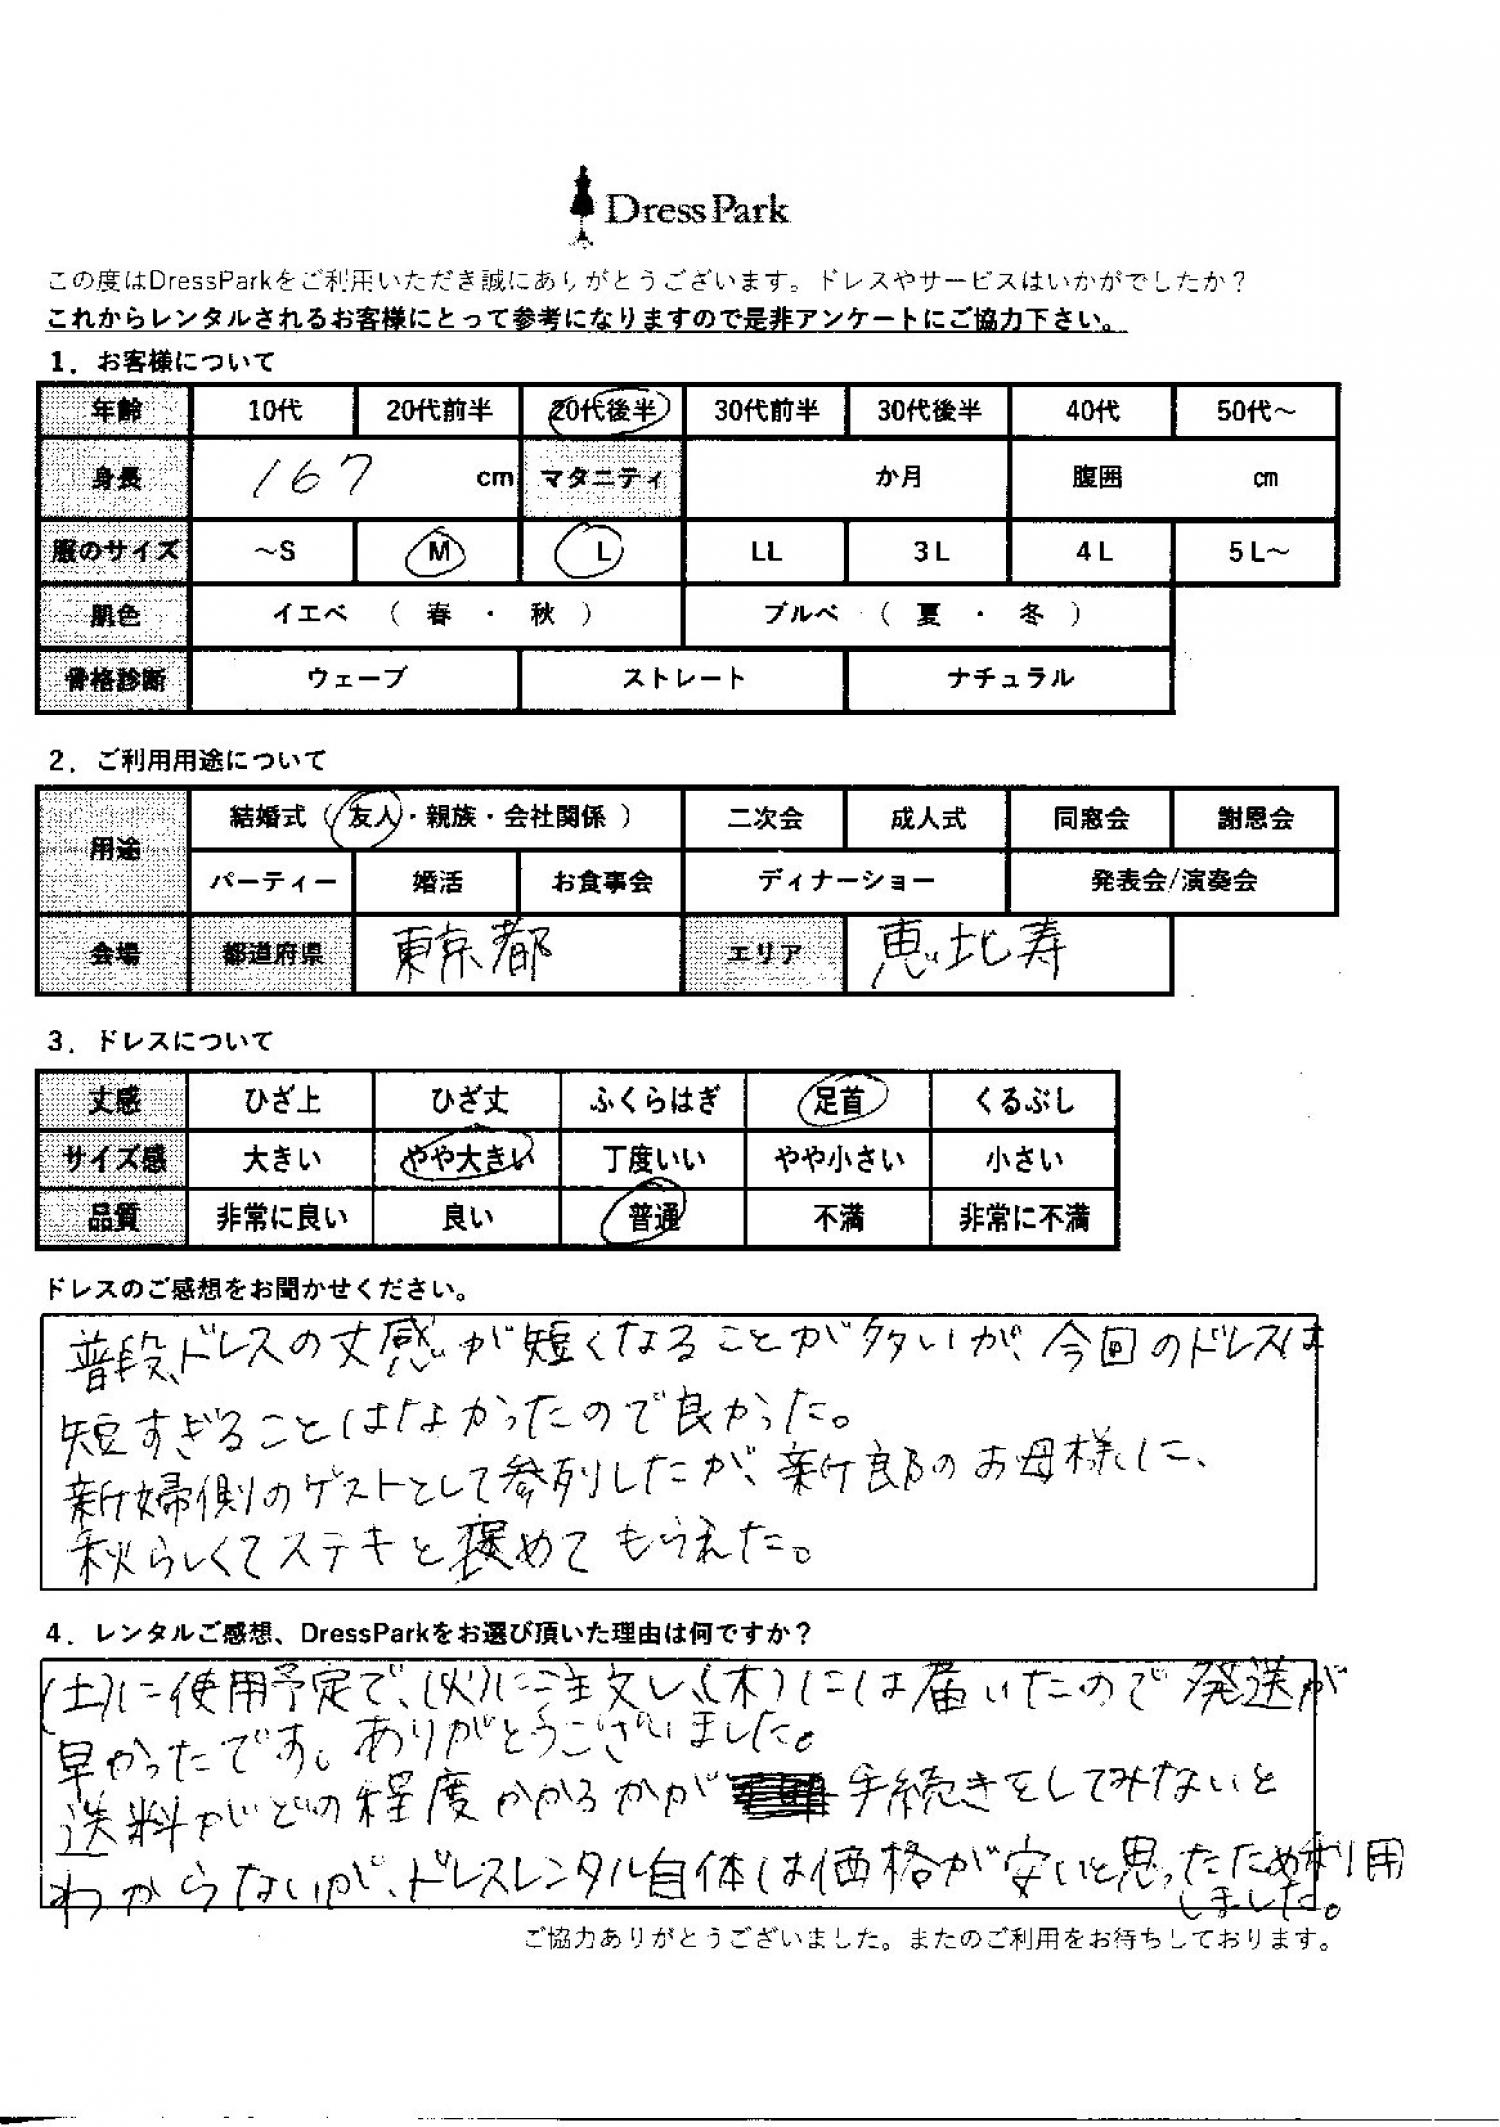 DressPark
この度はDressParkをご利用いただき誠にありがとうございます。ドレスやサービスはいかがでしたか？
これからレンタルされるお客様にとって参考になりますので是非アンケートにご協力下さい。
1．お客様について
年齢 10代 20代前半 20代後半 30代前半 30代後半 40代 50代～
身長 167 cm マタニティ か月 腹囲 cm
服のサイズ ～S M L LL 3L 4L 5L～
肌色 イエベ （ 春 ・ 秋 ） ブルベ （ 夏 ・ 冬 ）
骨格診断 ウェーブ ストレート ナチュラル
2．ご利用用途について
用途 結婚式（ 友人・親族・会社関係 ） 二次会 成人式 同窓会 謝恩会
パーティー 婚活 お食事会 ディナーショー 発表会/演奏会
会場 都道府県 東京都 エリア 恵比寿
3．ドレスについて
丈感 ひざ上 ひざ丈 ふくらはぎ 足首 くるぶし
サイズ感 大きい やや大きい 丁度いい やや小さい 小さい
品質 非常に良い 良い 普通 不満 非常に不満
ドレスのご感想をお聞かせください。
普段、ドレスの丈感が短くなることが多いが、今回のドレスは
短すぎることはなかったので良かった。
新婦側のゲストとして参列したが、新郎のお母様に、
秋らしくてステキと褒めてもらえた。
4．レンタルご感想、DressParkをお選び頂いた理由は何ですか？
(土)に使用予定で、(火)にご注文し、(木)には届いたので発送が
早かったです。ありがとうございました。
送料がどの程度かかるかが 手続きをしてみないと
わからないが、ドレスレンタル自体は価格が安いと思ったため利用
しました。
ご協力ありがとうございました。またのご利用をお待ちしております。